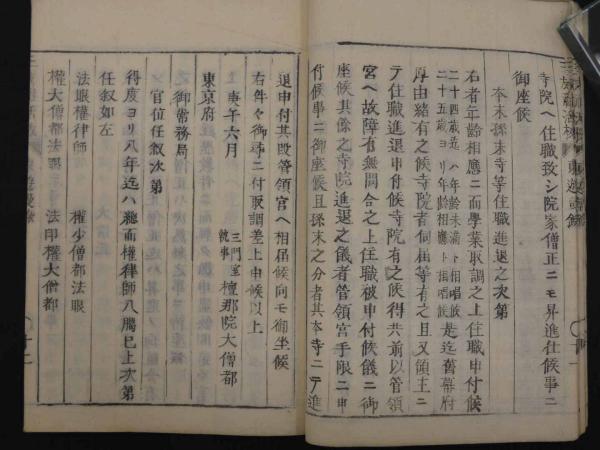 寺院ヘ住職致シ院家僧正ニモ昇進仕候事ニ
御座候
本末孫末寺等住職進退之次第
右者年齢相應ニ而學業取調之上住職申付候
二十四歳迄ハ年齢未満ト相唱候
二十五歳ヨリ年齢相應ト相唱候
是迄舊幕府
厚由緒有之候寺院者伺屆等有之且又領主ニ
テ住職進退申付候寺院有之候得共前以管領
宮ヘ故障有無問合之上住職被申付候儀ニ御
座候其餘之寺院進退之儀者管領宮手限ニ申
付候事ニ御座候且孫末之分者其本寺ニテ進
退申付其段管領宮ヘ相屆候向モ御坐候
右件々御尋ニ付取調差上申候以上
庚午六月
三門室
執事
檀那院大僧都
東京府
御常務局
官位任敘次第
得度ヨリ八年迄ハ總而權律師八﨟已上次第
任敘如左
法眼權律師
權少僧都法眼
權大僧都法眼
法印權大僧都